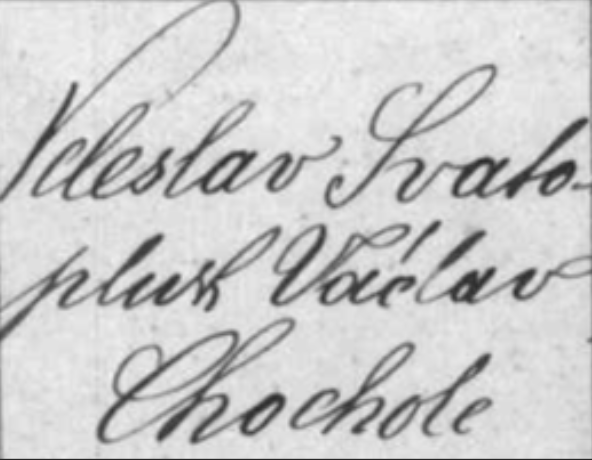 Veleslav Svato-
pluk Václav
Chochole